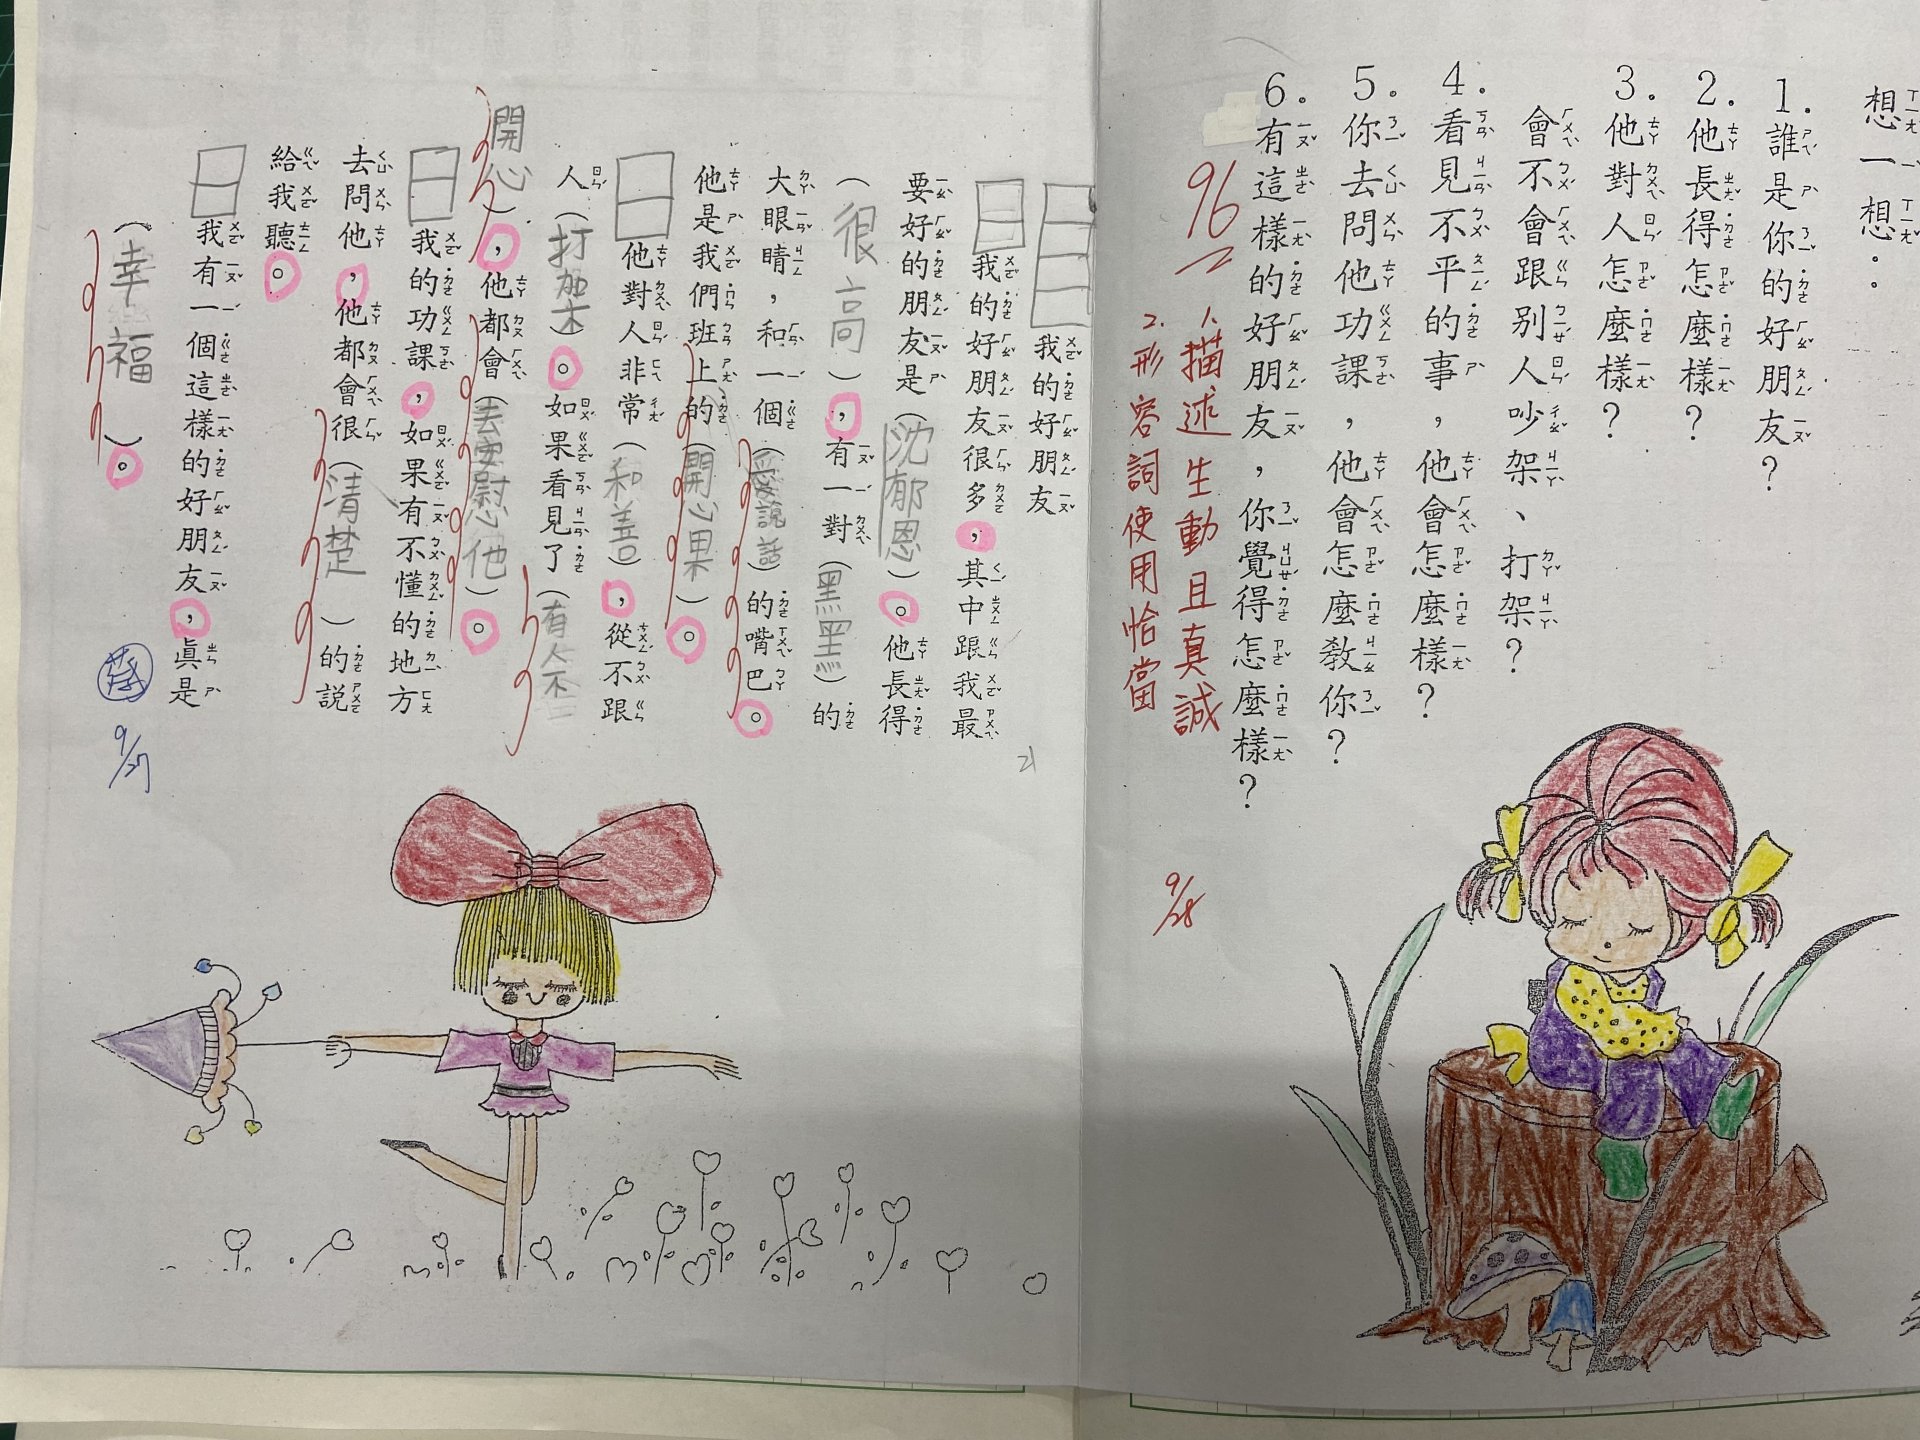 想一想：
1.誰是你的好朋友？
2.他長得怎麼樣？
3.他對人怎麼樣？
會不會跟別人吵架、打架？
4.看見不平的事，他會怎麼樣？
5.你去問他功課，他會怎麼教你？
6.有這樣的好朋友，你覺得怎麼樣？
96
1.描述生動且真誠
2.形容詞使用恰當
9/28
我的好朋友
我的好朋友很多，其中跟我最
要好的朋友是（沈郁恩）。他長得
（很高），有一對（黑黑）的
大眼睛，和一個（愛說話）的嘴巴。
他是我們班上的（開心果）。
他對人非常（和善），從不跟
人（打架）。如果看見了（有人不
開心），他都會（去安慰他）。
我的功課，如果有不懂的地方
去問他，他都會很（清楚）的說
給我聽。
我有一個這樣的好朋友，真是
（幸福）。
9/27
21